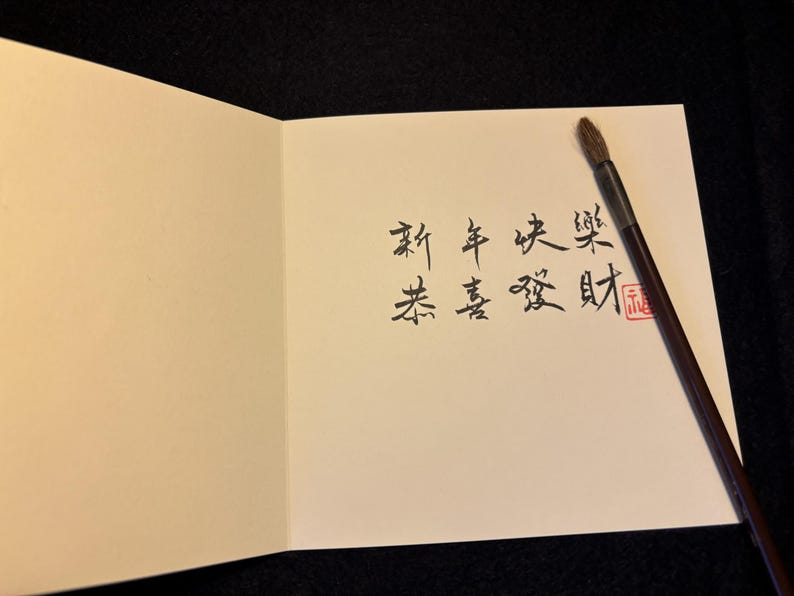 新年快樂
恭喜發財
福